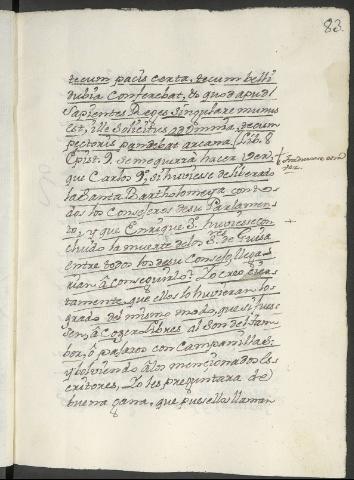 83.
tecum pacis certa, tecum belli
dubia conferebat, & quod apud
Sapientes Reges singulare munus
est, ille Solicitus ad omnia, tecum
pectoris pandebat arcana. (Lib. 8
Epist. 9. se me querrá hacer creer
que Carlos 9º, si huviese deliberado
la Santa Bartholomeya con to-
dos los Consejeros de su Parlamen-
to, y que Enrique 3º huviese con-
cluido la muerte de los SSres de Guisa
entre todos los de su Consejo, llega-
rian à conseguirlo? Yo creo cier-
tamente que ellos lo huvieran lo-
grado del mismo modo, que si fues-
sen, à Cojer liebres al Son del tam-
bor, ò pajaros con Campanillas:
y bolviendo à los mencionados Es-
critores, Yo les preguntara de
buena gana, que pues ellos llaman